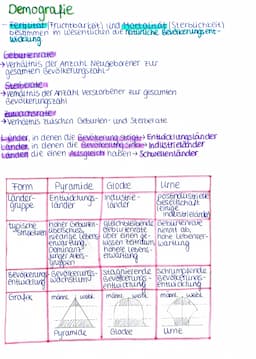 Demografie
- Fertilität (Fruchtbarkeit) und Mortalität (Sterblichkeit)
bestimmen im wesentlichen die natürliche Bevölkerungsent-
wicklung
Geburtenrate
→ Verhältnis der Anzahl Neugeborener zur
gesamten Bevölkerungszahl
Sterberate
→ Verhältnis der Anzahl Verstorbener zur gesamten
Bevölkerungszahl
Zuwachsrate
→ Verhältnis zwischen Geburten- und Sterberate
Länder, in denen die Bevölkerung steigt → Entwicklungsländer
Länder, in denen die Bevölkerung sinkt → Industrieländer
Länder, die einen Ausgleich haben → Schwellenländer
Form Pyramide Glocke Urne
Länder- Entwicklungs- Industrie- postindustrielle
gruppe länder länder Gesellschaft
(einige
Industrieländer)
typische hoher Geburten- gleichbleibende Geburtenrate
überschuss, Geburtenrate nimmt ab,
geringe Lebens- über einen ge- hohe Lebenser-
erwartung, wissen Zeitraum, wartung
Dominanz hohe Lebens-
junger Alters- erwartung
gruppen
Bevölkerungs- Bevölkerungs- Stagnierende Schrumpfende
entwicklung wachstum Bevölkerungs- Bevölkerungs-
entwicklung entwicklung
Grafik männl. weibl. männl. weibl. männl. weibl.
Pyramide Glocke Urne